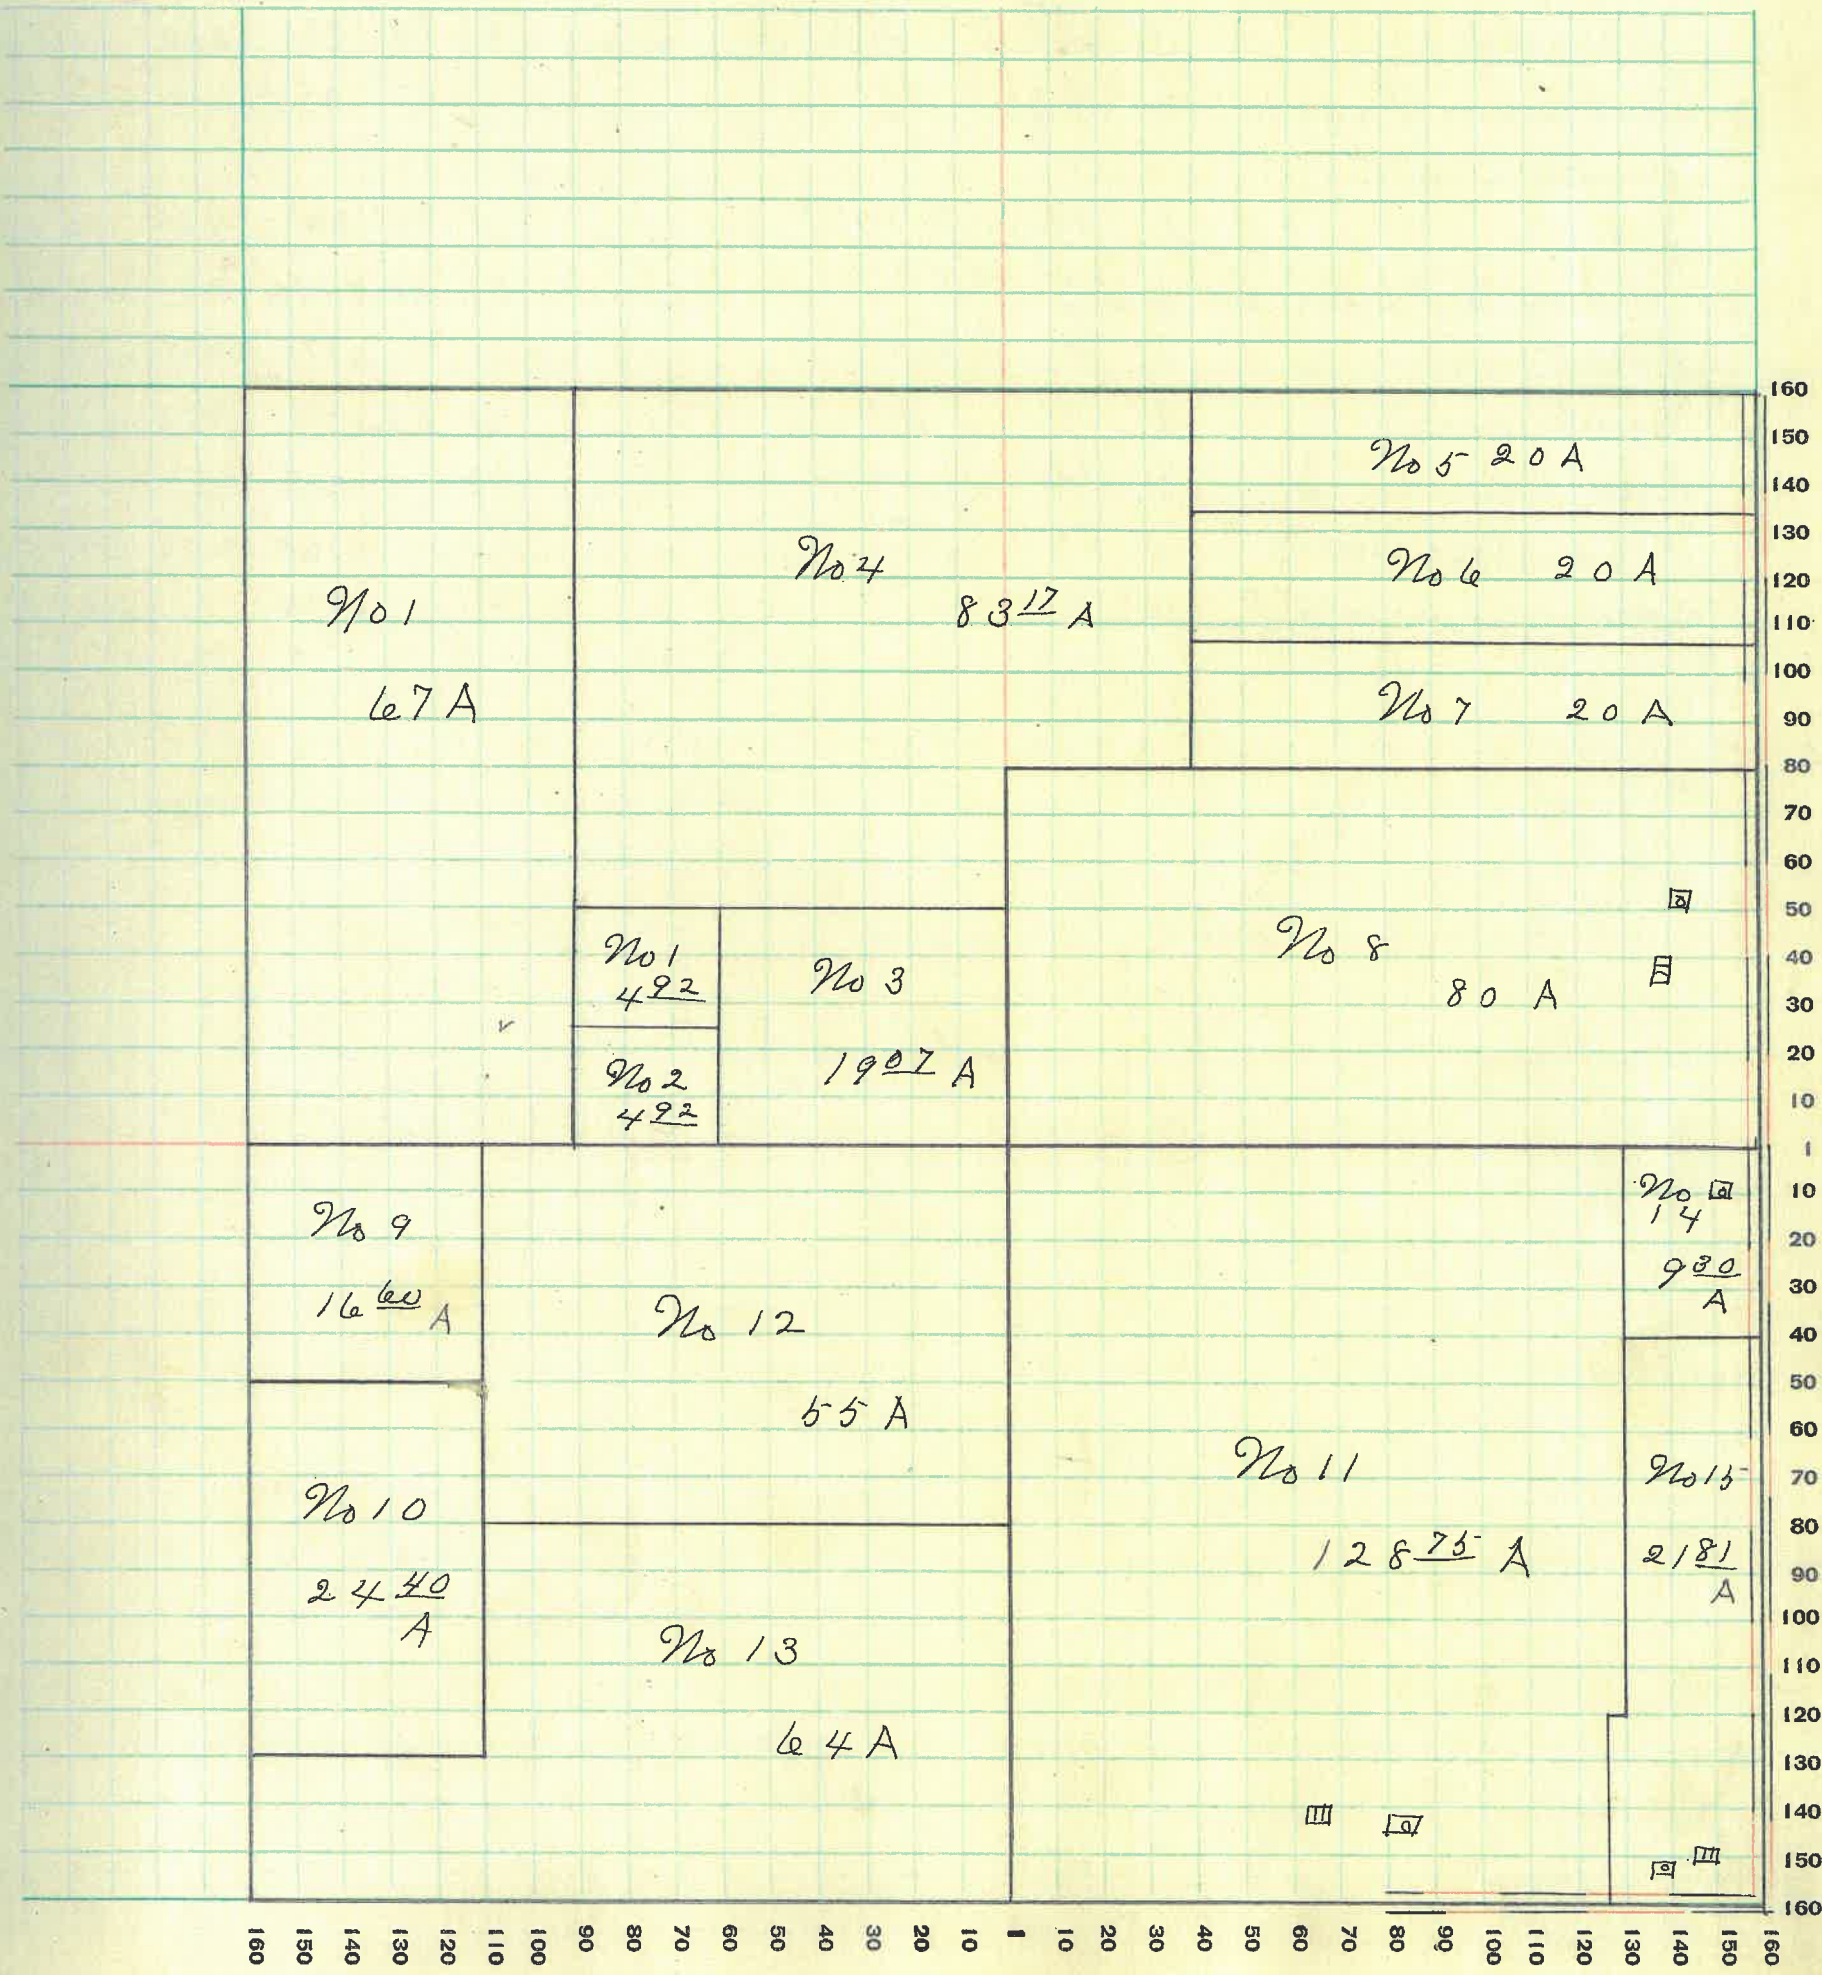 No 1
67 A
No 4
83 17 A
No 5 20 A
No 6 20 A
No 7 20 A
No 1
4 92
No 2
4 92
No 3
19 07 A
No 8
80 A
No 9
16 60 A
No 10
24 40
A
No 12
55 A
No 13
64 A
No 11
128 75 A
No
14
9 30
A
No 15
21 81
A
160
150
140
130
120
110
100
90
80
70
60
50
40
30
20
10
1
10
20
30
40
50
60
70
80
90
100
110
120
130
140
150
160
160 150 140 130 120 110 100 90 80 70 60 50 40 30 20 10 1 10 20 30 40 50 60 70 80 90 100 110 120 130 140 150 160